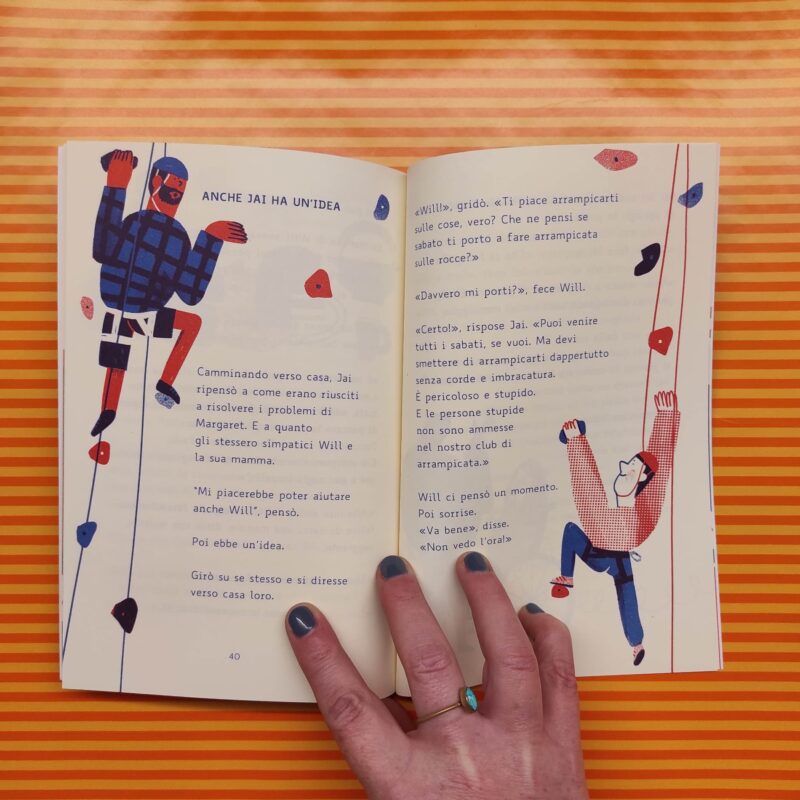 ANCHE JAI HA UN'IDEA
Camminando verso casa, Jai
ripensò a come erano riusciti
a risolvere i problemi di
Margaret. E a quanto
gli stessero simpatici Will e
la sua mamma.
"Mi piacerebbe poter aiutare
anche Will", pensò.
Poi ebbe un'idea.
Girò su se stesso e si diresse
verso casa loro.
40
«Will!», gridò. «Ti piace arrampicarti
sulle cose, vero? Che ne pensi se
sabato ti porto a fare arrampicata
sulle rocce?»
«Davvero mi porti?», fece Will.
«Certo!», rispose Jai. «Puoi venire
tutti i sabati, se vuoi. Ma devi
smettere di arrampicarti dappertutto
senza corde e imbracatura.
È pericoloso e stupido.
E le persone stupide
non sono ammesse
nel nostro club di
arrampicata.»
Will ci pensò un momento.
Poi sorrise.
«Va bene», disse.
«Non vedo l'ora!»